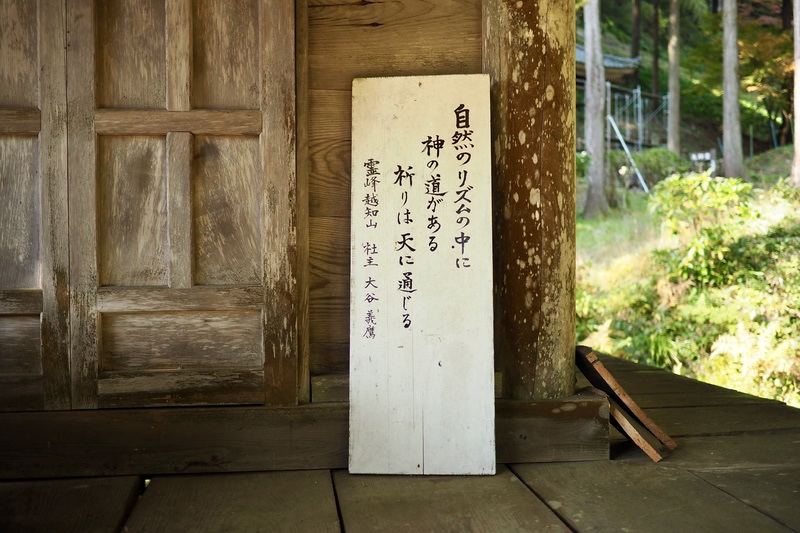 自然のリズムの中に
神の道がある
祈りは天に通じる
霊峰越知山 社主 大谷義鷹